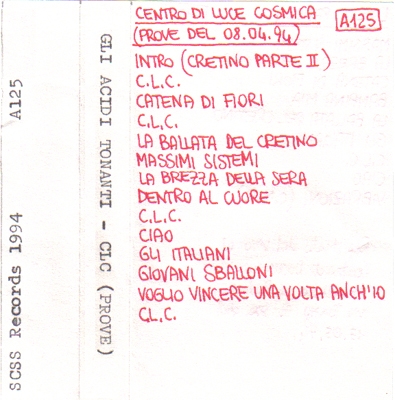 SCSS Records 1994 A125
GLI ACIDI TONANTI - CLC (PROVE)
CENTRO DI LUCE COSMICA
(PROVE DEL 08.04.94)
A125
INTRO (CRETINO PARTE II)
C.L.C.
CATENA DI FIORI
C.L.C.
LA BALLATA DEL CRETINO
MASSIMI SISTEMI
LA BREZZA DELLA SERA
DENTRO AL CUORE
C.L.C.
CIAO
GLI ITALIANI
GIOVANI SBALLONI
VOGLIO VINCERE UNA VOLTA ANCH'IO
C.L.C.